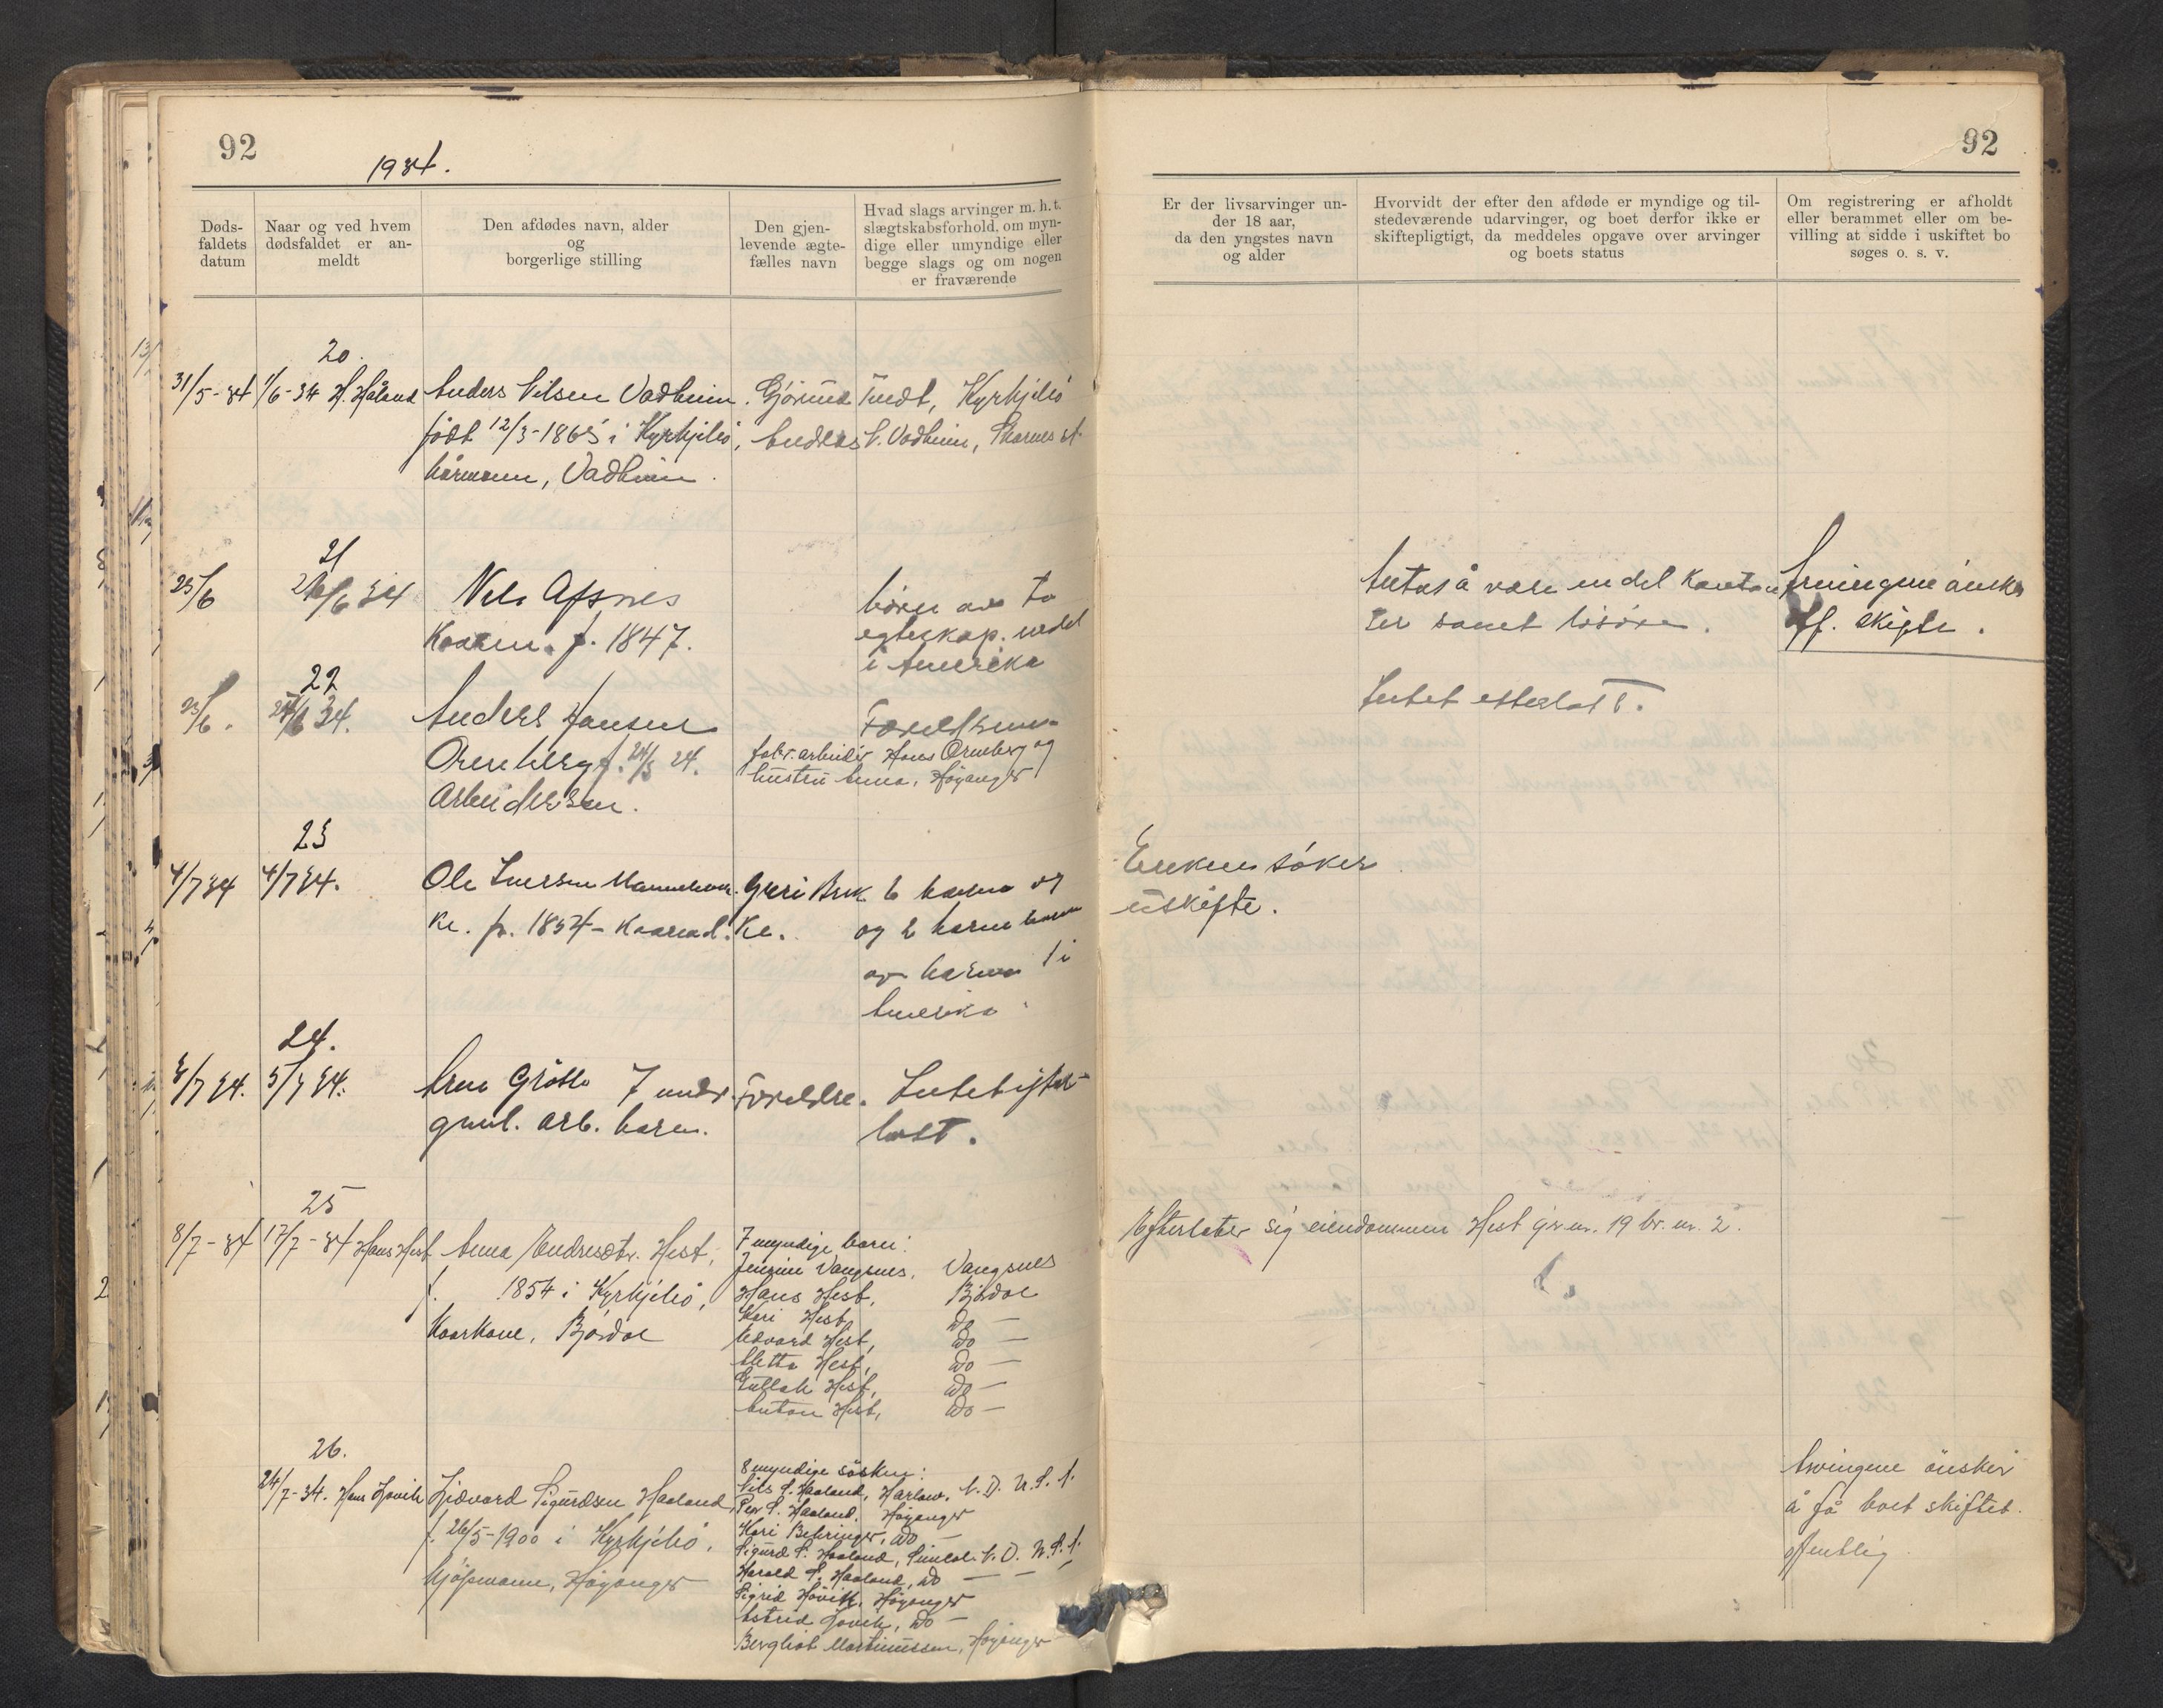 92
1934.
92
Døds-
faldets
datum
Naar og ved hvem
dødsfaldet er an-
meldt
Den afdødes navn, alder
og
borgerlige stilling
Den gjen-
levende ægte-
fælles navn
Hvad slags arvinger m. h. t.
slægtskabsforhold, om myn-
dige eller umyndige eller
begge slags og om nogen
er fraværende
Er der livsarvinger un-
der 18 aar,
da den yngstes navn
og alder
Hvorvidt der efter den afdøde er myndige og til-
stedeværende udarvinger, og boet derfor ikke er
skiftepligtigt, da meddeles opgave over arvinger
og boets status
Om registrering er afholdt
eller berammet eller om be-
villing at sidde i uskiftet bo
søges o. s. v.
20.
31/5-34 1/6-34 H. Håland Anders Nilsen Vadheim. Gjørund Kyrkjebø
født 12/3-1865 i Kyrkjebø, Andreas N. Vadheim,
kårmann, Vadheim.
21
25/6 26/6 34 Nils
Kaarm. f. 1847.
børn av to
egteskap. endel
i Amerika
Antas å være endel kontan
ter samt løsøre.
Arvingene ønsker
off. skifte.
22
23/6. 34. Anders Hansen
Orneberg f. 24/3 24.
Arbeidersøn.
Foreldrene
fabr. arbeider Hans Orneberg og
hustru Anna, Høyanger
Intet efterlatt.
23
4/7 34 4/7 34. Ole Iversen
ke. f. 1854 - Kaarmd.
Guri Brek
ke.
6 barn og
og 2 barne barn
av barna 1 i
Amerika
Enken søker
uskifte.
24.
3/7 34. 5/7 34. Arne Grøtte 7 mndr.
gml. arb. barn.
Foreldre.
Intet efter-
latt.
25
8/7-34 17/7-34 Hans Hest Anna Endresdtr. Hest,
f. 1854 i Kyrkjebø,
Kaarkone, Bjordal
7 myndige barn:
Jensine Vangsnes, Vangsnes
Hans Hest, Bjordal
Kari Hest, do —
Edvard Hest, do —
Mette Hest, do —
Gullak Hest, do —
Anton Hest, do —
Efterlater sig eiendommen Hest g.nr. 19 br. nr. 2.
26.
24/7-34. Hans Hovik Hjalvard Sigurdsen Haaland,
f. 26/5-1900 i Kyrkjebø,
kjøpmann, Høyanger
8 myndige søsken:
Nils S. Haaland, Harlow, N. D. U. S. A.
Per S. Haaland, Høyanger
Kari Behringer, do —
Sigurd S. Haaland, N. D. U. S. A.
Harald S. Haaland, do — — —
Sigrid Hovik, Høyanger
Astrid Hovik, do —
Bergliot Martinussen, Høyanger
Arvingene ønsker
å få boet skiftet
offentlig